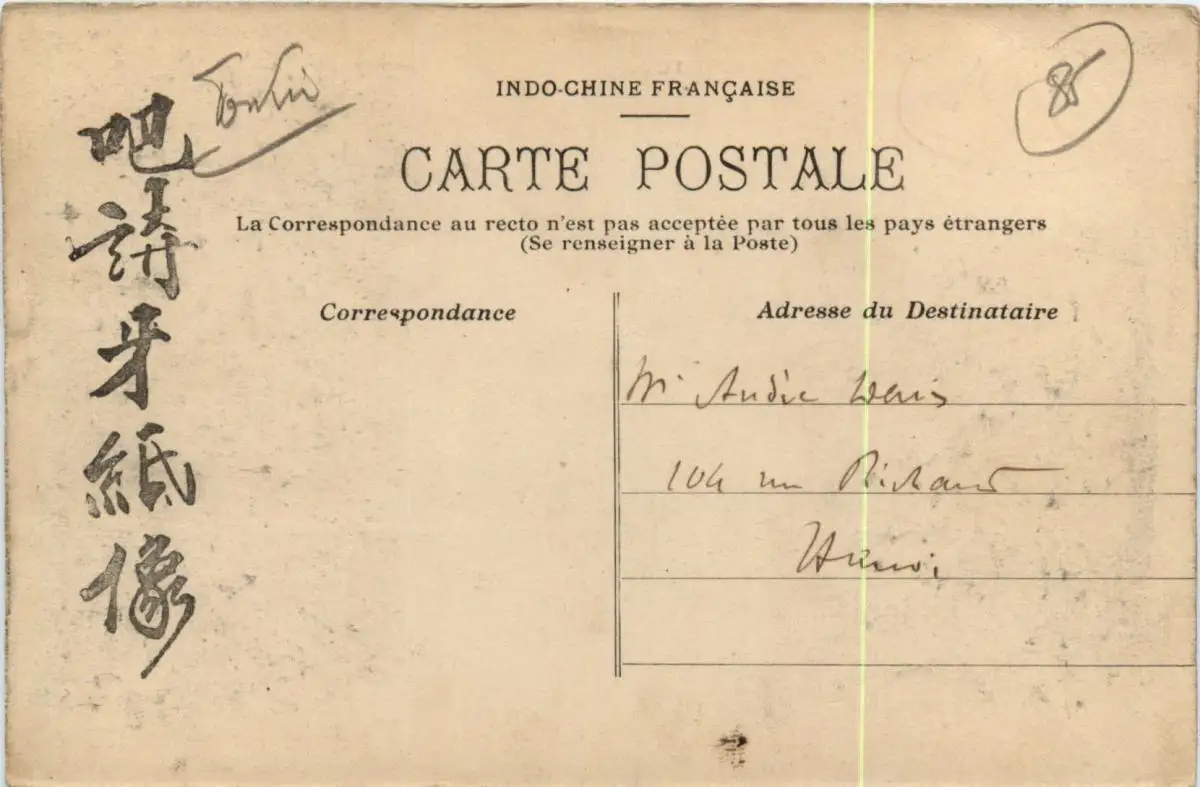 Tonkin
85
INDO-CHINE FRANÇAISE
CARTE POSTALE
La Correspondance au recto n'est pas acceptée par tous les pays étrangers
(Se renseigner à la Poste)
Correspondance
Adresse du Destinataire
Mr André
104 rue Richaud
Hanoi
吧請牙紙像